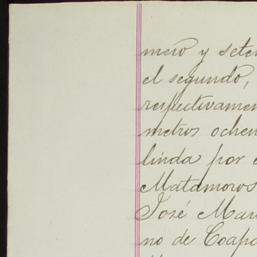 mero y seten
el segundo,
respectivamen
metros ochen
linda por e
Matamoros
José Mar
no de Coapa